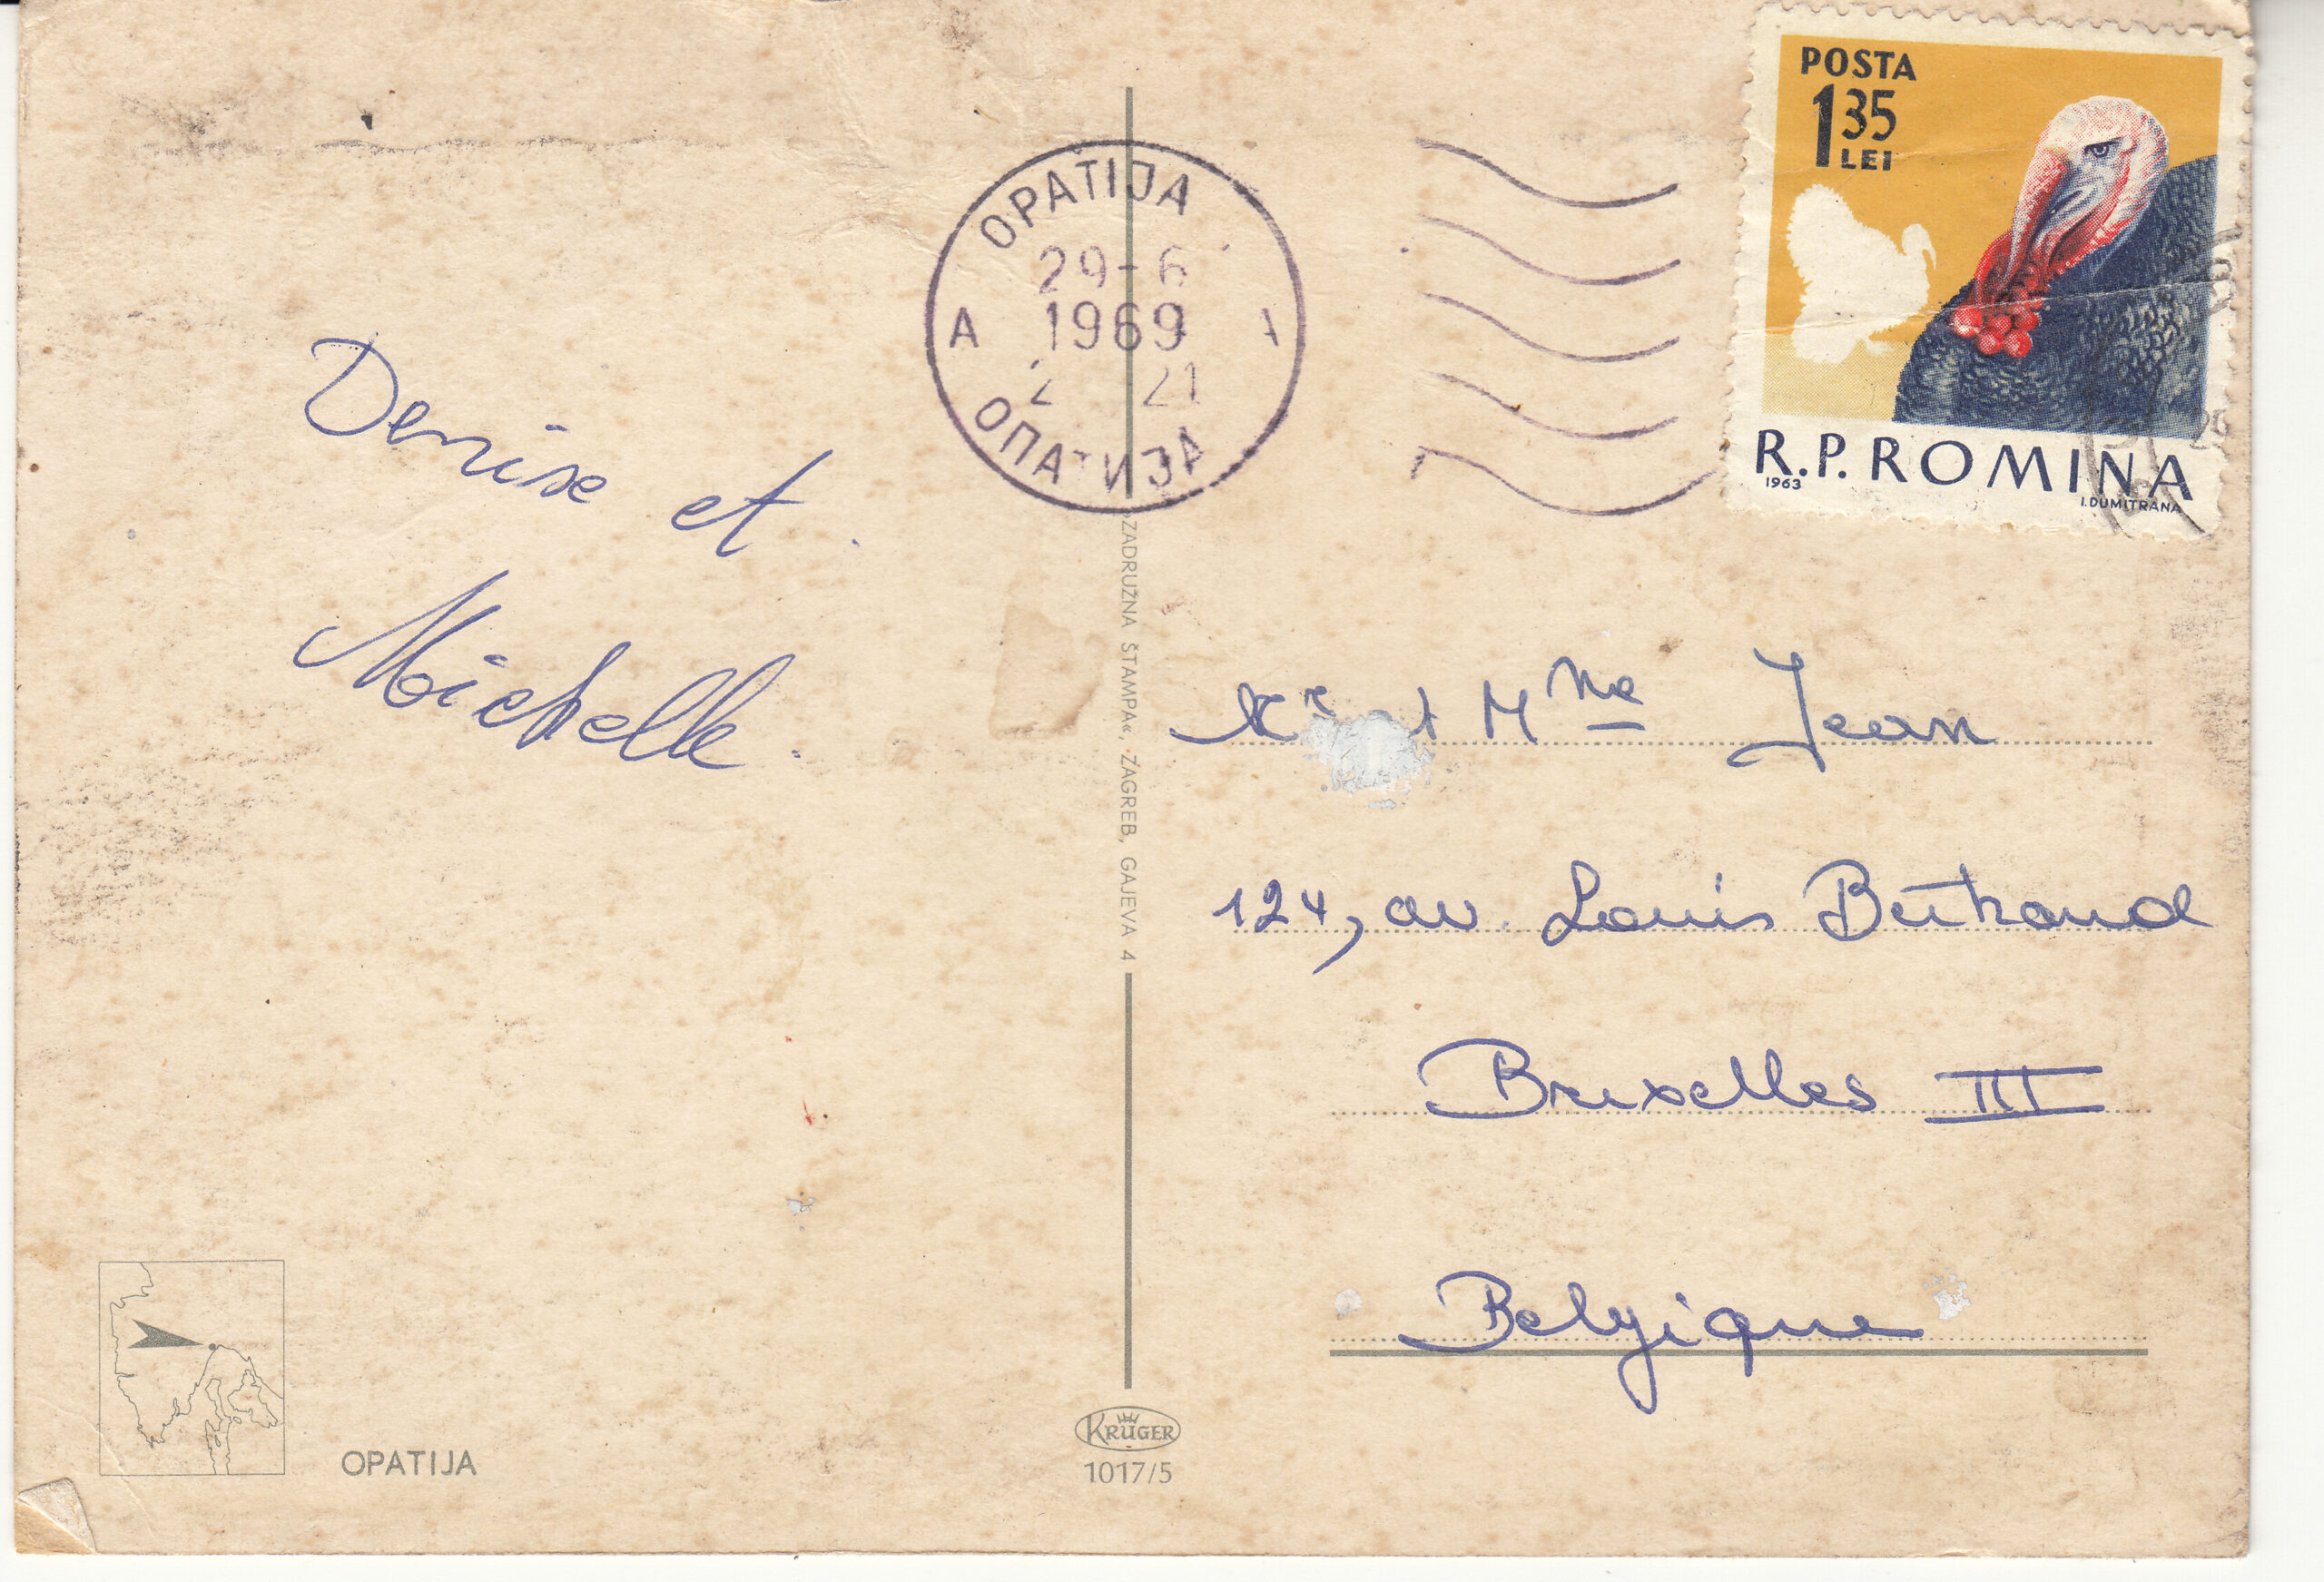 POSTA
1 35
LEI
R.P. ROMINA
1963
I. DUMITRANA
OPATIJA
29-6
1969
21
A
ОПАТИЈА
Denise et
Michelle.
Mr et Mme Jean
124, av. Louis Bertrand
Bruxelles III
Belgique
»ZADRUŽNA ŠTAMPA«, ZAGREB, GAJEVA 4
OPATIJA
KRÜGER
1017/5